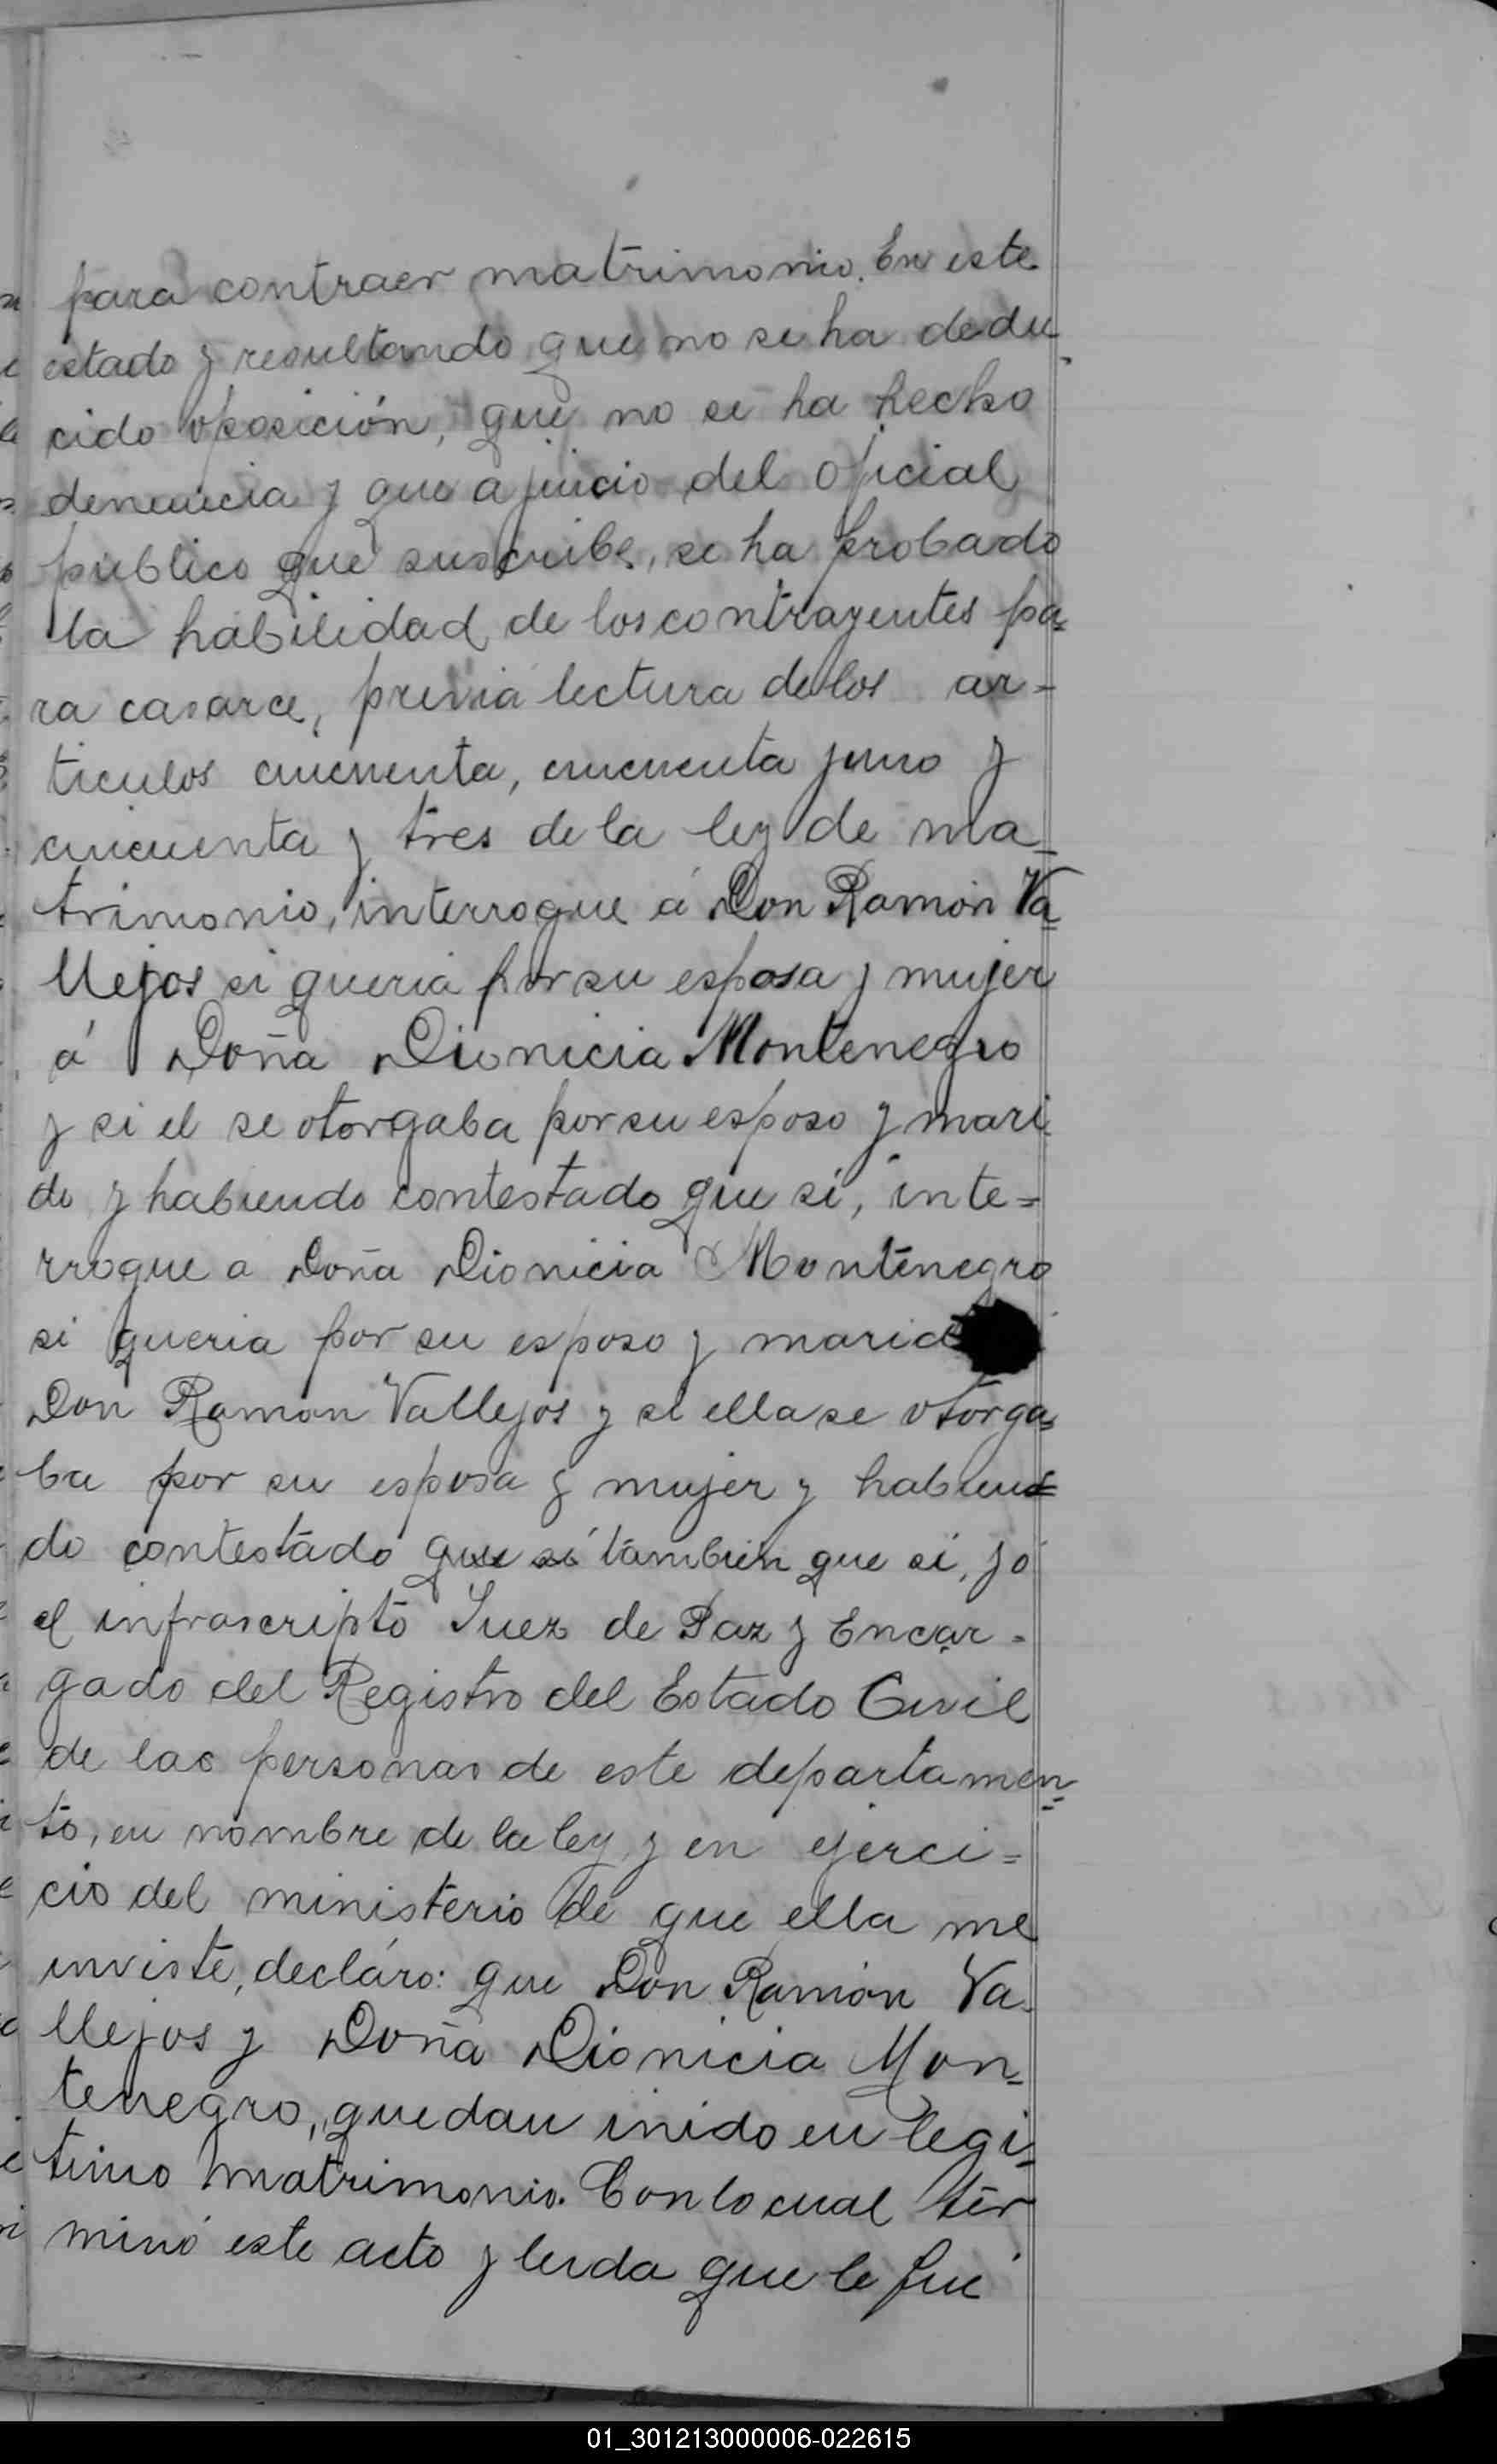 para contraer matrimonio. En este
estado y resultando que no se ha dedu
cido oposición, que no se ha hecho
denuncia y que a juicio del oficial
público que suscribe, se ha probado
la habilidad de los contrayentes pa=
ra casarce, previa lectura de los ar=
ticulos cincuenta, cincuenta y uno y
cincuenta y tres de la ley de ma_
trimonio, interrogue á Don Ramón Va=
llejos si queria por su esposa y mujer
á Doña Dionicia Montenegro
y si el se otorgaba por su esposo y mari
do y habiendo contestado que si, inte=
rrogue a Doña Dionicia Montenegro
si queria por su esposo y marid
Don Ramon Vallejos y si ella se otorga=
ba por su esposa y mujer y habien=
do contestado que sí tambien que si, yo
el infrascripto Juez de Paz y Encar=
gado del Registro del Estado Civil
de las personas de este departamen=
to, en nombre de la ley y en ejerci=
cio del ministerio de que ella me
inviste, decláro: que Don Ramón Va_
llejos y Doña Dionicia Mon=
tenegro, quedan unido en legi=
timo matrimonio. Con lo cual ter
minó este acto y leida que le fué
01_301213000006-022615